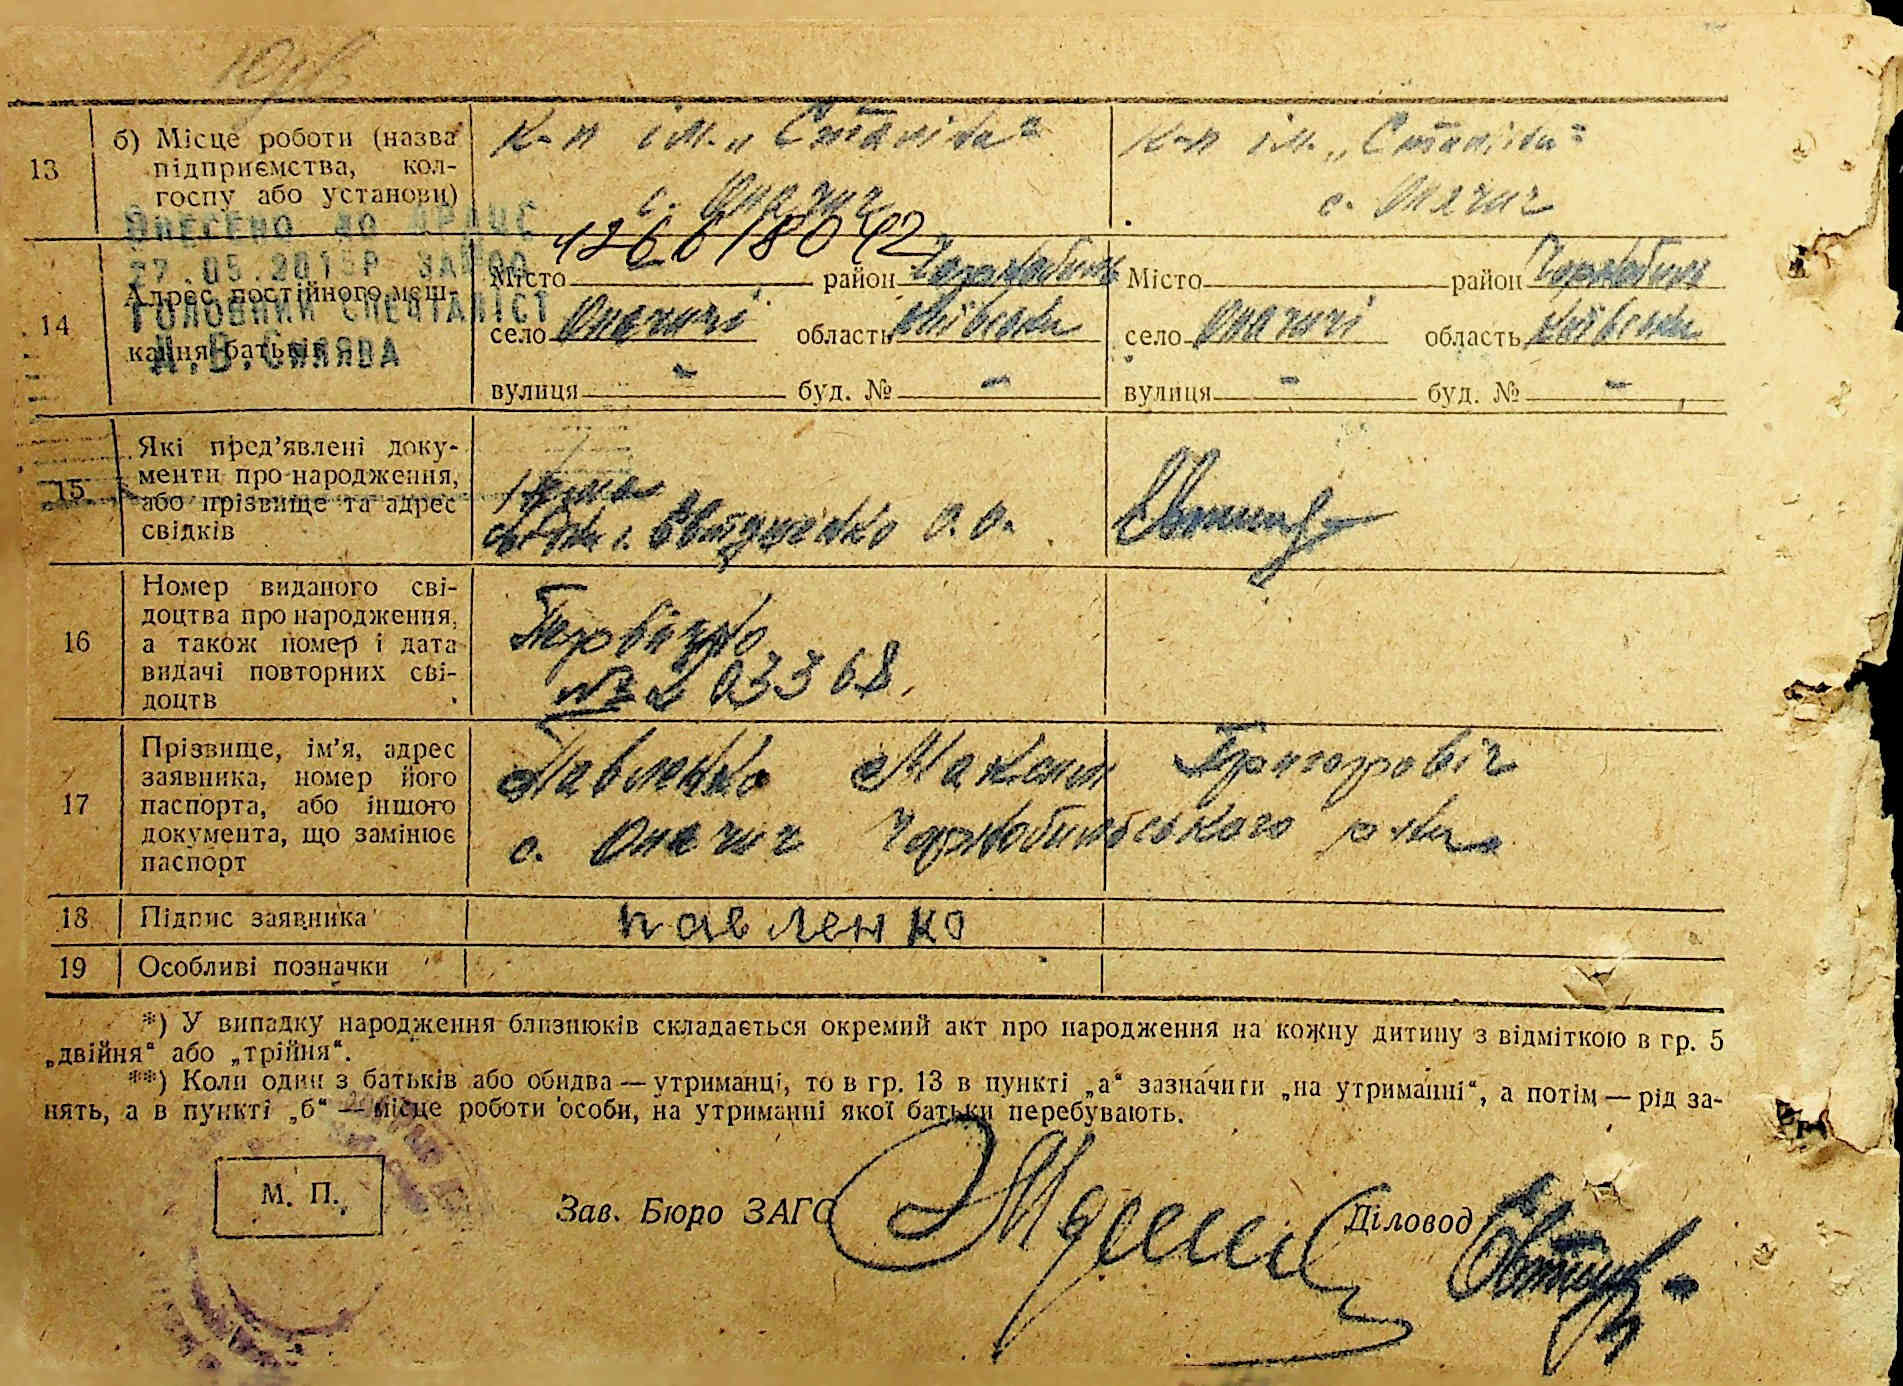 13 б) Місце роботи (назва підприємства, кол-госпу або установи)
к-п ім. „Сталіна"
с. Опачич
к-п ім. „Сталіна"
с. Опачич
ВНЕСЕНО ДО ДРАЦС
27.05.201
ГОЛОВНИЙ СПЕЦІАЛІСТ
14 Адрес постійного меш-
кання батьків
Місто район Чорнобиль
село Опачичі область Київська
вулиця - буд. № -
Місто район Чорнобиль
село Опачичі область Київська
вулиця - буд. № -
15 Які пред'явлені доку-
менти про народження,
або прізвище та адрес
свідків
О. О.
16 Номер виданого сві-
доцтва про народження,
а також номер і дата
видачі повторних сві-
доцтв
Первічно
№ 203368.
17 Прізвище, ім'я, адрес
заявника, номер його
паспорта, або іншого
документа, що замінює
паспорт
Павленко Максим Григоровіч
с. Опачич Чорнобильського р-ну
18 Підпис заявника павленко
19 Особливі позначки
*) У випадку народження близнюків складається окремий акт про народження на кожну дитину з відміткою в гр. 5
„двійня" або „трійня".
**) Коли один з батьків або обидва — утриманці, то в гр. 13 в пункті „а" зазначити „на утриманні", а потім — рід за-
нять, а в пункті „б" — місце роботи особи, на утриманні якої батьки перебувають.
М. П.
Зав. Бюро ЗАГС
Діловод